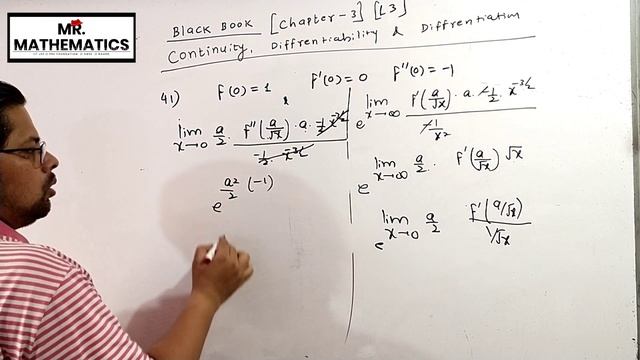 MR.
MATHEMATICS
Black Book [Chapter-3] [L3]
Continuity, Diffrentiability & Diffrentiation
41) f(0)=1, f'(0)=0 f''(0)=-1
lim x→0 a/2 · f''(a/√x)·a·-1/2 x^-3/2 / -1/2·x^-3/2
e^ a²/2 (-1)
e^ lim x→∞ f'(a/√x)·a·-1/2·x^-3/2 / -1/x²
e^ lim x→∞ a/2 · f'(a/√x) √x
e^ lim x→0 a/2 f'(a/√x) / 1/√x